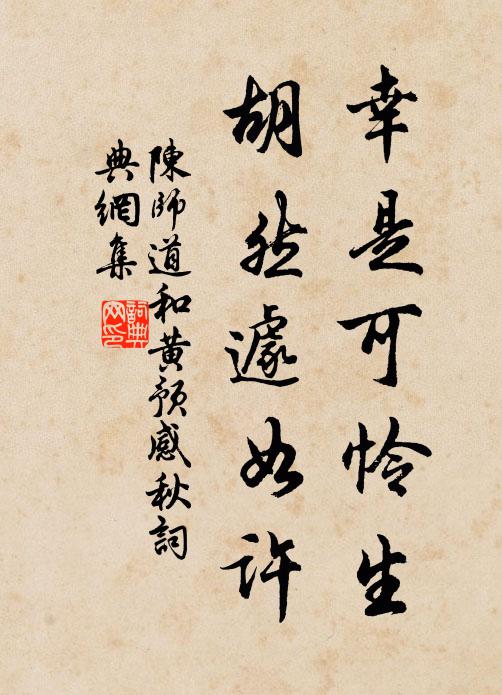 幸是可怜生
胡然遽如许
陳師道和黄预感秋詞
典網集
詞典网印